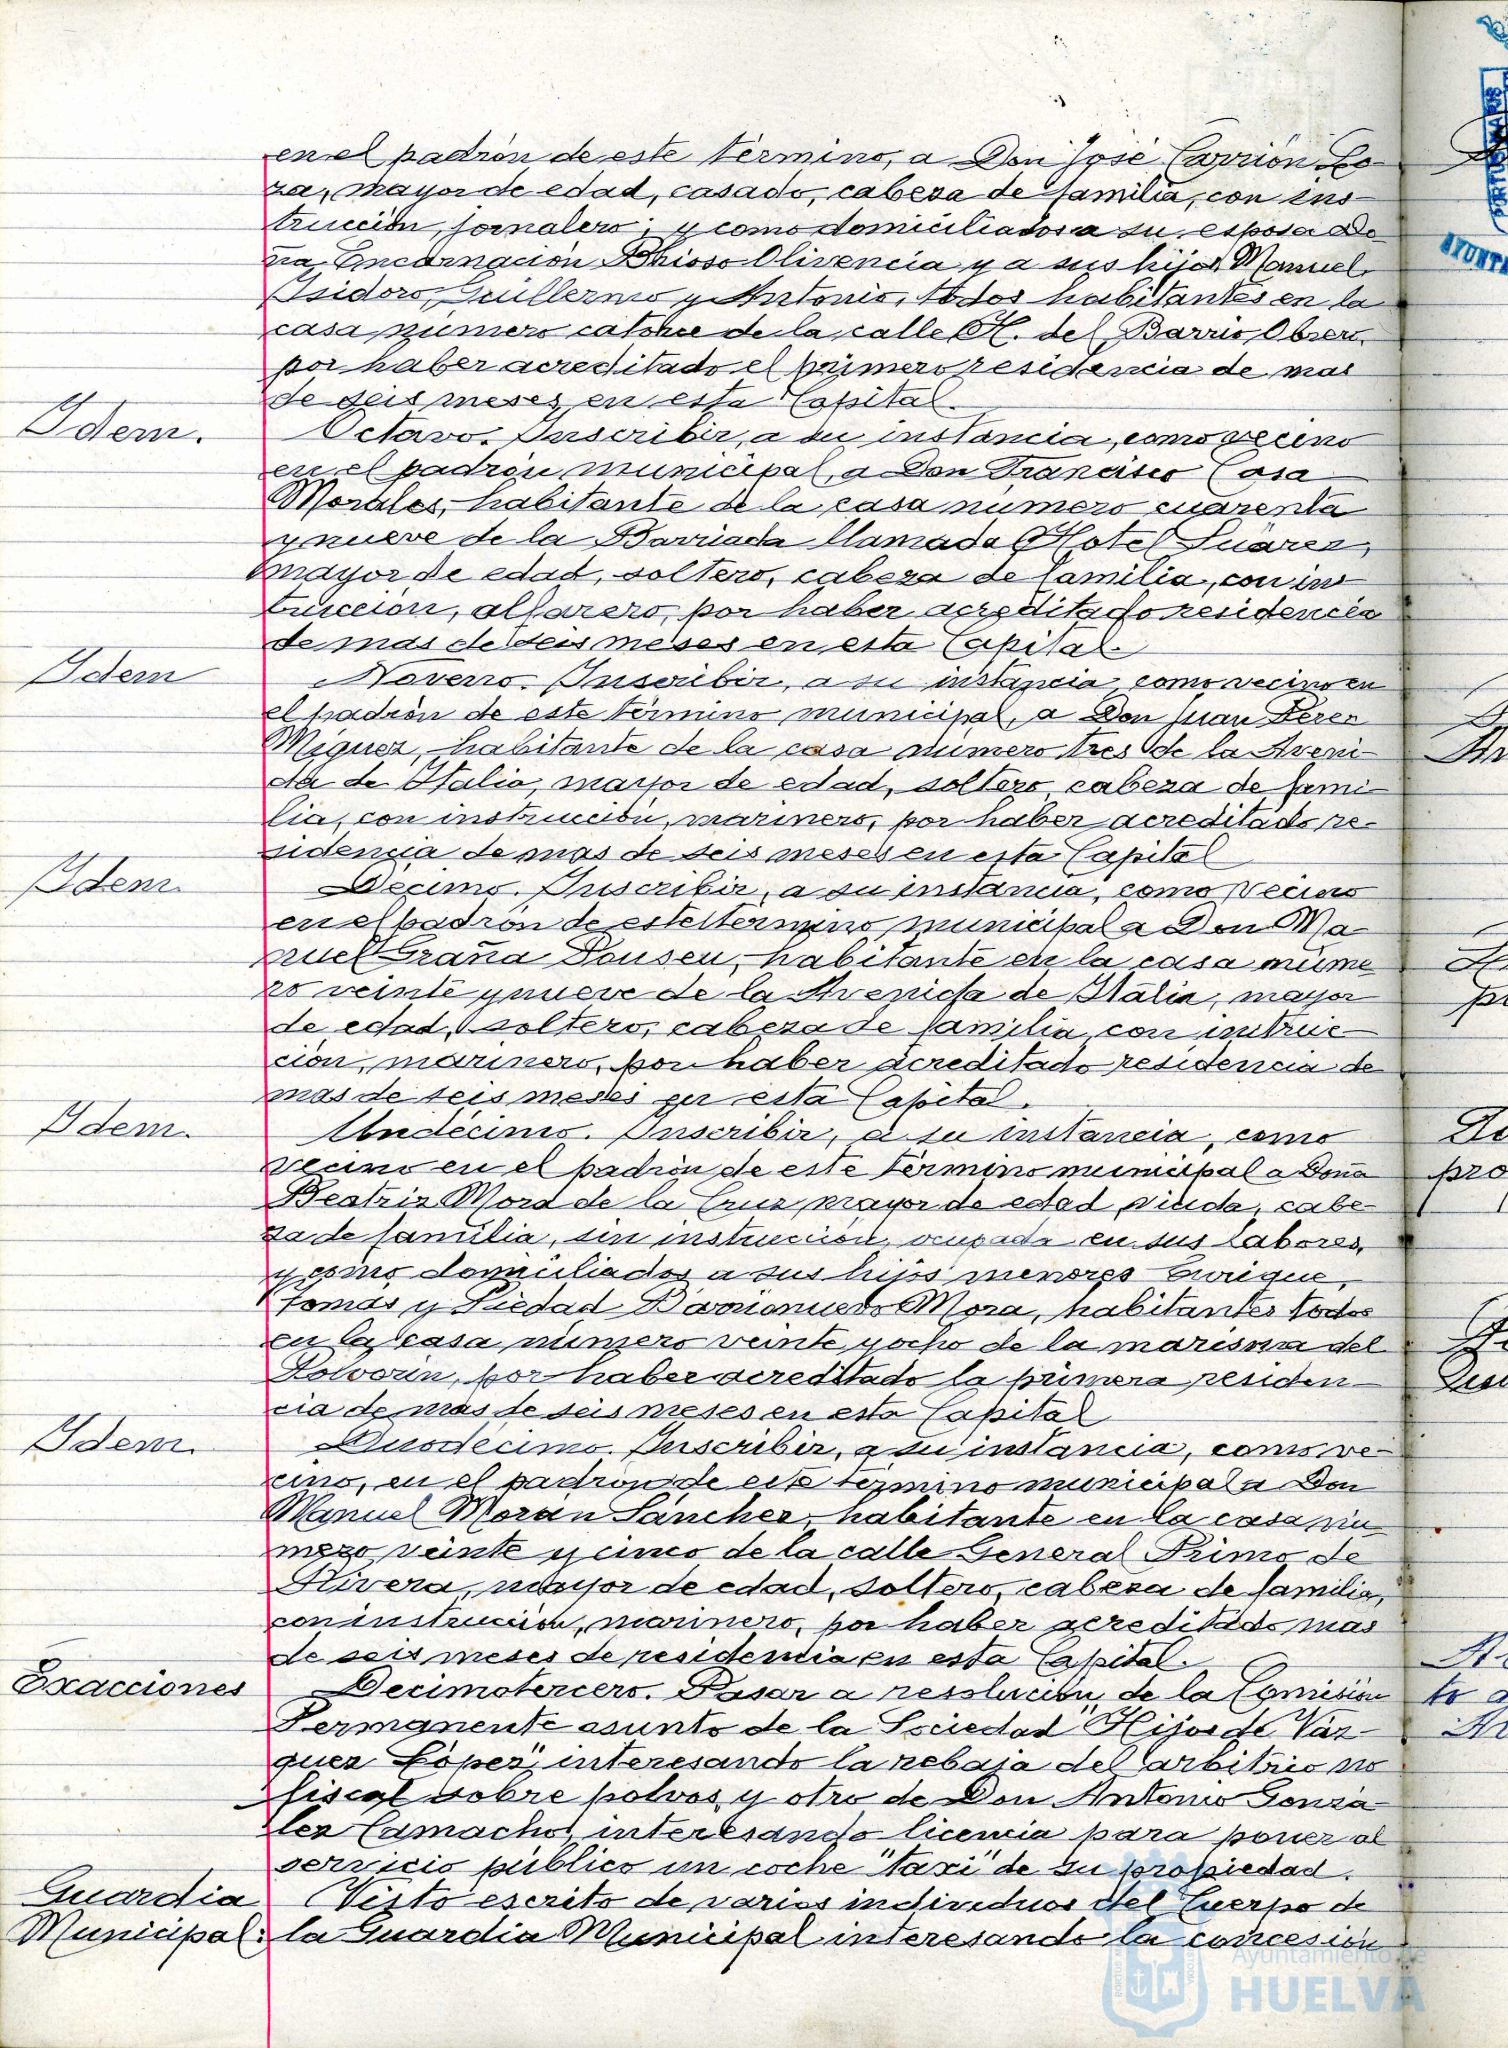 en el padrón de este término, a Don José Carrión Lo-
za, mayor de edad, casado, cabeza de familia, con ins-
trucción, jornalero; y como domiciliados a su esposa Do-
ña Encarnación Bhioso Olivencia y a sus hijos Manuel,
Isidoro, Guillermo y Antonio, todos habitantes en la
casa número catorce de la calle H. del Barrio Obrero,
por haber acreditado el primero residencia de mas
de seis meses en esta Capital.
Idem.
Octavo. Inscribir, a su instancia, como vecino
en el padrón municipal, a Don Francisco Casa
Morales, habitante de la casa número cuarenta
y nueve de la Barriada llamada Hotel Suárez,
mayor de edad, soltero, cabeza de familia, con ins-
trucción, alfarero, por haber acreditado residencia
de mas de seis meses en esta Capital.
Idem
Noveno. Inscribir, a su instancia como vecino en
el padrón de este término municipal, a Don Juan Pérez
Míguez, habitante de la casa número tres de la Aveni-
da de Italia, mayor de edad, soltero, cabeza de fami-
lia, con instrucción, marinero, por haber acreditado re-
sidencia de mas de seis meses en esta Capital
Idem.
Décimo. Inscribir, a su instancia, como vecino
en el padrón de este término municipal a Don Ma-
nuel Graña Pouseu, habitante en la casa núme
ro veinte y nueve de la Avenida de Italia, mayor
de edad, soltero, cabeza de familia con instruc-
ción, marinero, por haber acreditado residencia de
mas de seis meses en esta Capital.
Idem.
Undécimo. Inscribir, a su instancia, como
vecino en el padrón de este término municipal a Doña
Beatriz Mora de la Cruz, mayor de edad, viuda, cabe-
za de familia, sin instrucción, ocupada en sus labores,
y como domiciliados a sus hijos menores Enrique,
Tomás y Piedad Barrionuevo Mora, habitantes todos
en la casa número veinte y ocho de la marisma del
Polvorín, por haber acreditado la primera residen-
cia de mas de seis meses en esta Capital
Idem.
Duodécimo. Inscribir, a su instancia, como ve-
cino, en el padrón de este término municipal a Don
Manuel Morán Sánchez, habitante en la casa nú-
mero veinte y cinco de la calle General Primo de
Rivera, mayor de edad, soltero, cabeza de familia,
con instrucción, marinero, por haber acreditado mas
de seis meses de residencia en esta Capital.
Exacciones
Decimotercero. Pasar a resolución de la Comisión
Permanente asunto de la Sociedad "Hijos de Váz-
quez López", interesando la rebaja del arbitrio no
fiscal sobre polvos, y otro de Don Antonio Gonzá-
lez Camacho, interesando licencia para poner al
servicio público un coche "taxi" de su propiedad.
Guardia
Municipal.
Visto escrito de varios individuos del Cuerpo de
la Guardia Municipal interesando la concesión
Ayuntamiento de
HUELVA